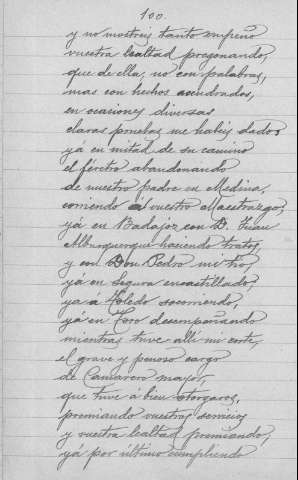 100.
y no mostreis tanto empeño
vuestra lealtad pregonando,
que de ella, no con palabras,
mas con hechos acendrados,
en ocasiones diversas
claras pruebas me habeis dado:
yá en mitad de su camino
el féretro abandonando
de nuestro padre en Medina,
corriendo á vuestro Maestrazgo;
yá en Badajoz con D. Juan
Alburquerque haciendo tratos,
y con Don Pedro mi tio,
yá en Segura encastillado,
ya á Toledo socorriendo,
yá en Toro desempeñando
mientras tuve alli mi corte,
el grave y penoso cargo
de Camarero mayor,
que tuve á bien otorgaros,
premiando vuestros servicios
y vuestra lealtad premiando,
yá por último cumpliendo